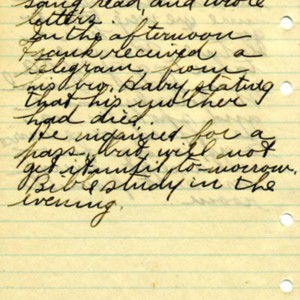 sang, read, and wrote
letters.
In the afternoon
Frank received a
telegram from
his bro, Harry, stating
that his mother
had died.
He inquired for a
pass, but will not
get it until to-morrow.
Bible study in the
evening.